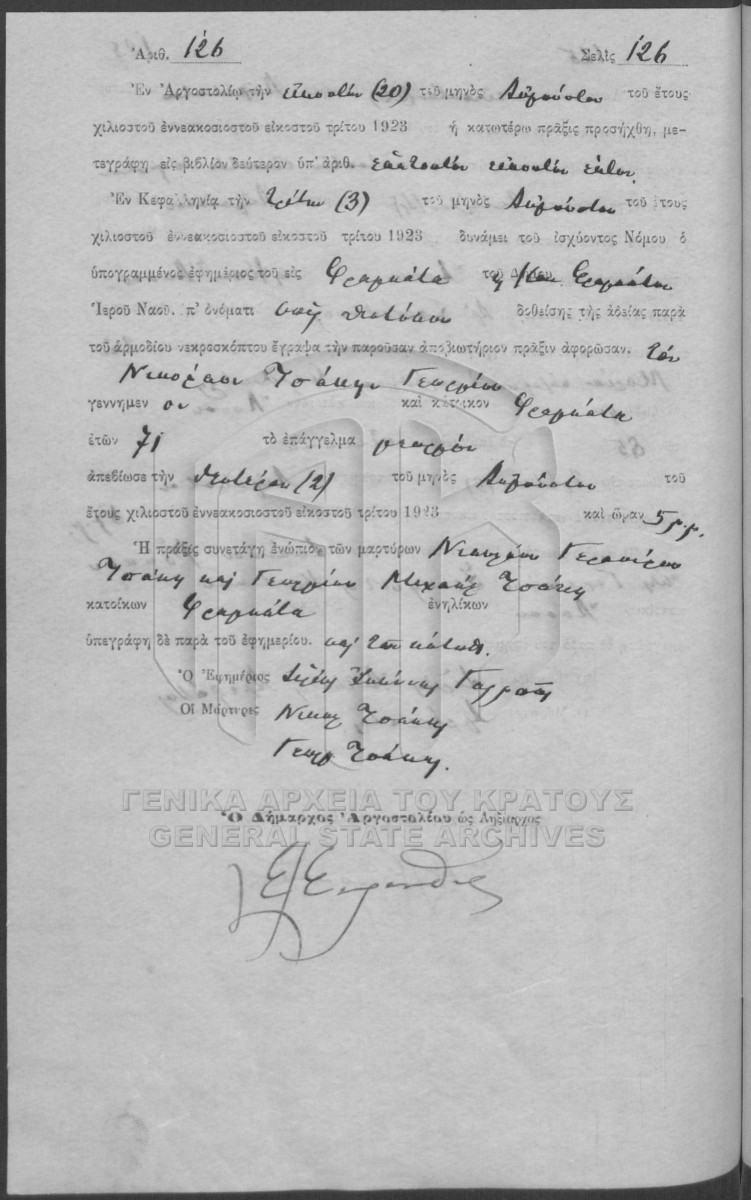 Ἀριθ. 126 Σελὶς 126
Ἐν Ἀργοστολίῳ τὴν εἰκοστὴν (20) τοῦ μηνὸς Αὐγούστου τοῦ ἔτους
χιλιοστοῦ ἐννεακοσιοστοῦ εἰκοστοῦ τρίτου 1923 ἡ κατωτέρω πρᾶξις προσήχθη, με-
τεγράφη εἰς βιβλίον δεύτερον ὑπ' ἀριθ. ἑκατοστὸν εἰκοστὸν ἕκτον
Ἐν Κεφαλληνίᾳ τὴν Τρίτην (3) τοῦ μηνὸς Αὐγούστου τοῦ ἔτους
χιλιοστοῦ ἐννεακοσιοστοῦ εἰκοστοῦ τρίτου 1923 δυνάμει τοῦ ἰσχύοντος Νόμου ὁ
ὑπογραμμένος ἐφημέριος τοῦ εἰς Φραγκάτα τοῦ Δήμου Φραγκάτων
Ἱεροῦ Ναοῦ. π' ὀνόματι δοθείσης τῆς ἀδείας παρὰ
τοῦ ἁρμοδίου νεκροσκόπτου ἔγραψα τὴν παροῦσαν ἀποβιωτήριον πρᾶξιν ἀφορῶσαν. τὸν
Νικόλαον Τσάκην Γεωργίου
γεννημεν ον καὶ κάτοικον Φραγκάτα
ἐτῶν 71 τὸ ἐπάγγελμα γεωργὸν
ἀπεβίωσε τὴν Δευτέραν (2) τοῦ μηνὸς Αὐγούστου τοῦ
ἔτους χιλιοστοῦ ἐννεακοσιοστοῦ εἰκοστοῦ τρίτου 1923 καὶ ὥραν 5 μ.μ.
Ἡ πρᾶξις συνετάγη ἐνώπιον τῶν μαρτύρων Νικολάου Γερασίμου
Τσάκη καὶ Γεωργίου Μιχαὴλ Τσάκη
κατοίκων Φραγκάτα ἐνηλίκων
ὑπεγράφη δὲ παρὰ τοῦ ἐφημερίου. καὶ τῶν κάτωθι.
Ὁ Ἐφημέριος Ἰωάννης
Οἱ Μάρτυρες Νικολ Τσάκης
Γεωρ Τσάκης.
ΓΕΝΙΚΑ ΑΡΧΕΙΑ ΤΟΥ ΚΡΑΤΟΥΣ
Ὁ Δήμαρχος Ἀργοστολίου ὡς Ληξίαρχος
GENERAL STATE ARCHIVES